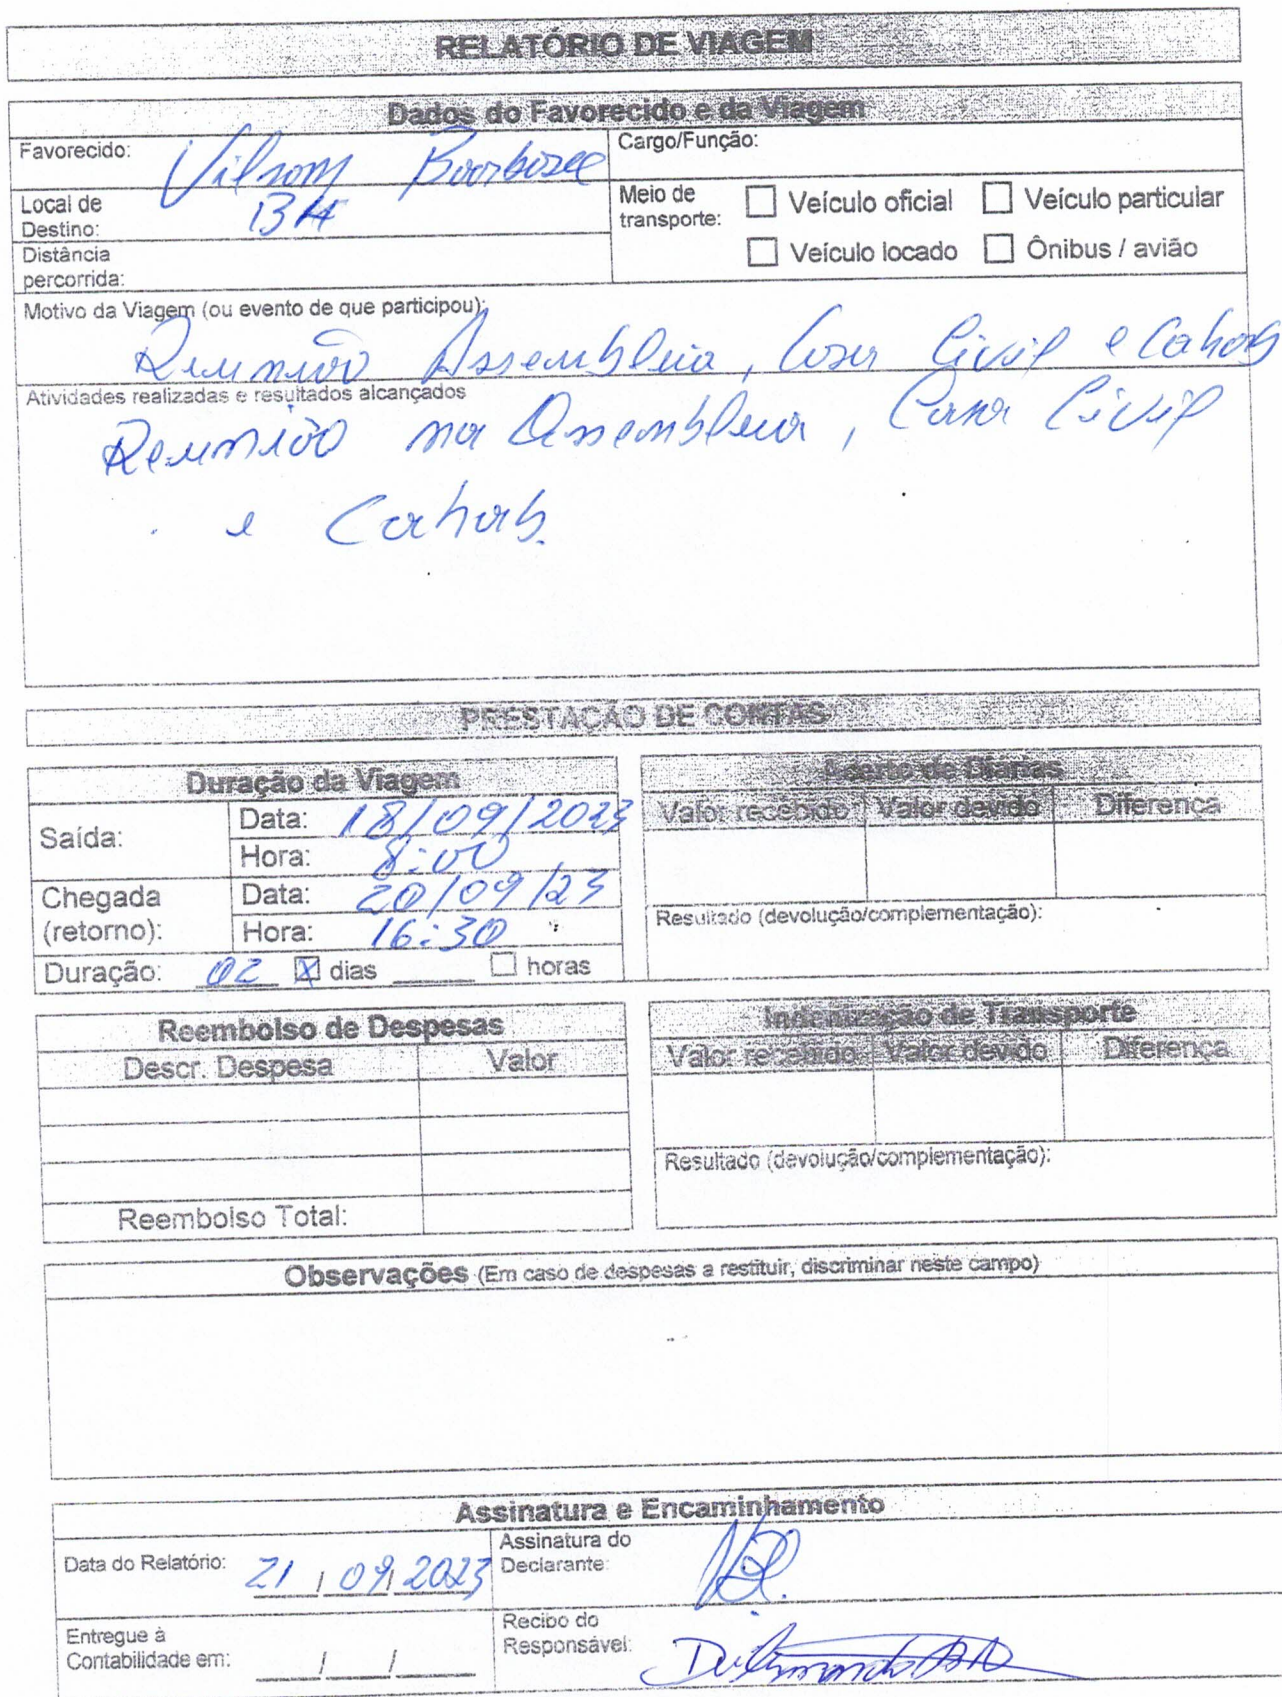 RELATÓRIO DE VIAGEM
Dados do Favorecido e da Viagem
Favorecido: Vilsom Barbosa
Cargo/Função:
Local de Destino: BH
Meio de transporte: ☐ Veículo oficial ☐ Veículo particular
Distância percorrida:
☐ Veículo locado ☐ Ônibus / avião
Motivo da Viagem (ou evento de que participou):
Reunião Assembleia, Casa Civil e Cahab
Atividades realizadas e resultados alcançados
Reunião na Assembleia, Casa Civil
e Cahab.
PRESTAÇÃO DE CONTAS
Duração da Viagem
Saída: Data: 18/09/2023
Hora: 8:00
Chegada (retorno): Data: 20/09/23
Hora: 16:30
Duração: 02 ☒ dias ____ ☐ horas
Acerto de Diárias
Valor recebido Valor devido Diferença
Resultado (devolução/complementação):
Reembolso de Despesas
Descr. Despesa Valor
Reembolso Total:
Indenização de Transporte
Valor recebido Valor devido Diferença
Resultado (devolução/complementação):
Observações (Em caso de despesas a restituir, discriminar neste campo)
Assinatura e Encaminhamento
Data do Relatório: 21/09/2023
Assinatura do Declarante:
Entregue à Contabilidade em: ___/___/___
Recibo do Responsável: